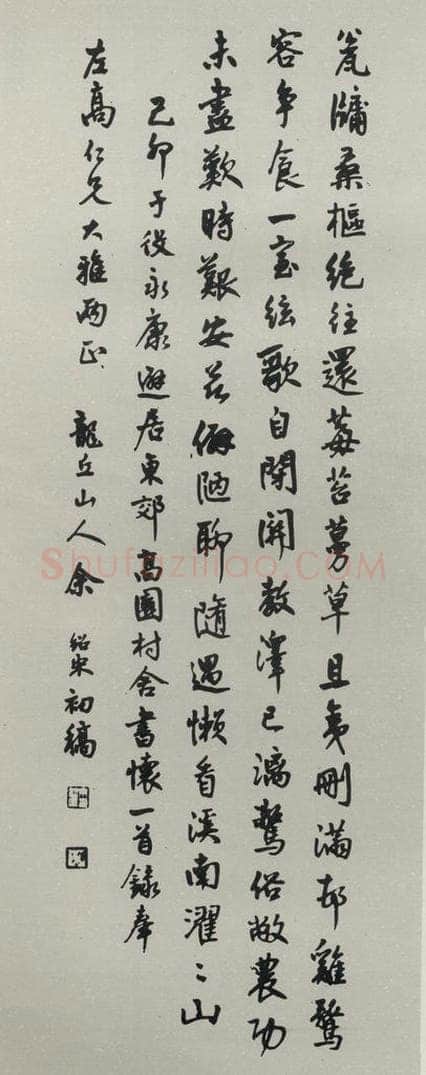 瓮牖桑樞絶往還莓苔蔓草且夷刪滿邨雞鶩
容争食一室絃歌自閉關教澤已漓驚俗敝農功
未盡歎時艱安茲僻陋聊隨遇懶看溪南濯〻山
己卯于役永康避居東郊高園村舍書懷一首録奉
左高仁兄大雅兩正 龍丘山人余紹宋初稿
Shufaziliao.COM